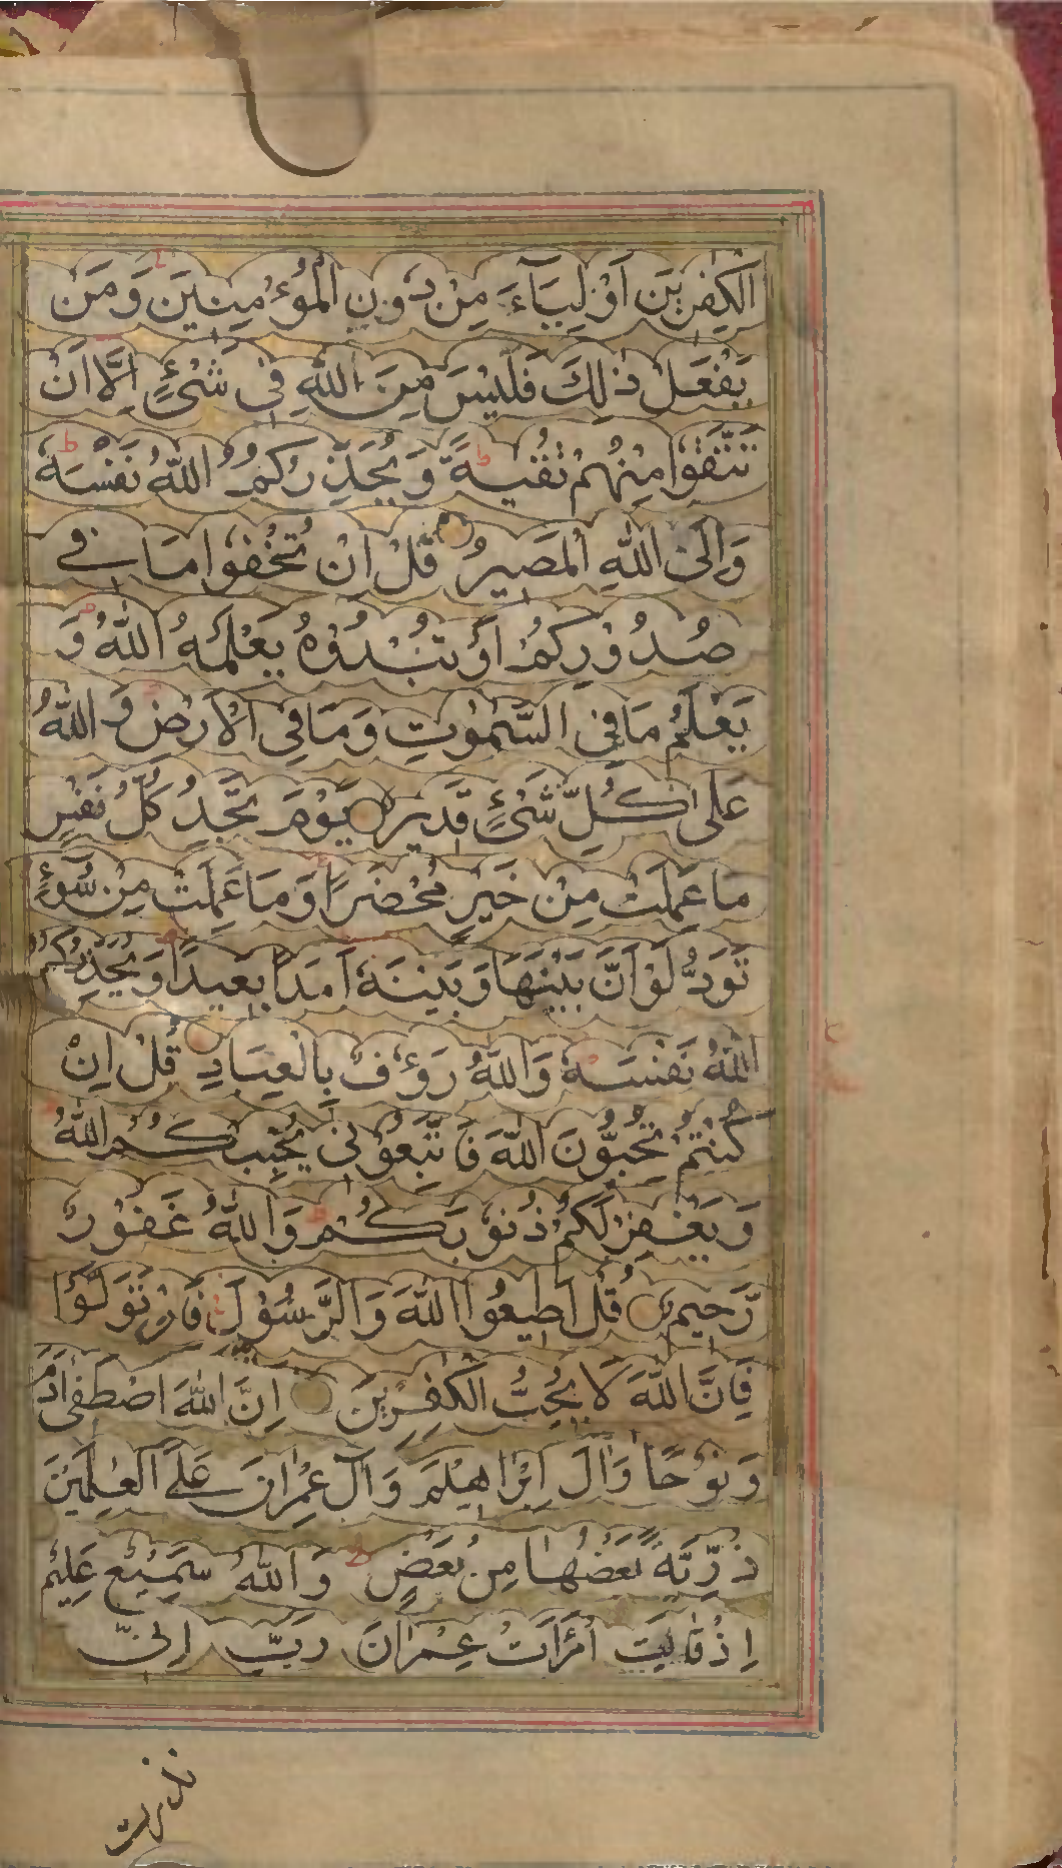 الْكٰفِرِيْنَ اَوْلِيَآءَ مِنْ دُوْنِ الْمُؤْمِنِيْنَ وَمَنْ
يَّفْعَلْ ذٰلِكَ فَلَيْسَ مِنَ اللّٰهِ فِىْ شَىْءٍ اِلَّا اَنْ
تَتَّقُوْا مِنْهُمْ تُقٰىةً ط وَيُحَذِّرُكُمُ اللّٰهُ نَفْسَهٗ ط
وَاِلَى اللّٰهِ الْمَصِيْرُ قُلْ اِنْ تُخْفُوْا مَا فِے
صُدُوْرِكُمْ اَوْ تُبْدُوْهُ يَعْلَمْهُ اللّٰهُ وَ
يَعْلَمُ مَا فِى السَّمٰوٰتِ وَمَا فِى الْاَرْضِ وَاللّٰهُ
عَلٰى كُلِّ شَىْءٍ قَدِيْرٌ يَوْمَ تَجِدُ كُلُّ نَفْسٍ
مَا عَمِلَتْ مِنْ خَيْرٍ مُّحْضَرًا وَمَا عَمِلَتْ مِنْ سُوْٓءٍ
تَوَدُّ لَوْ اَنَّ بَيْنَهَا وَبَيْنَهٗ اَمَدًا بَعِيْدًا وَيُحَذِّرُكُمُ
اللّٰهُ نَفْسَهٗ وَاللّٰهُ رَءُوْفٌ بِالْعِبَادِ قُلْ اِنْ
كُنْتُمْ تُحِبُّوْنَ اللّٰهَ فَاتَّبِعُوْنِىْ يُحْبِبْكُمُ اللّٰهُ
وَيَغْفِرْ لَكُمْ ذُنُوْبَكُمْ وَاللّٰهُ غَفُوْرٌ
رَّحِيْمٌ قُلْ اَطِيْعُوا اللّٰهَ وَالرَّسُوْلَ فَاِنْ تَوَلَّوْا
فَاِنَّ اللّٰهَ لَا يُحِبُّ الْكٰفِرِيْنَ اِنَّ اللّٰهَ اصْطَفٰى اٰدَمَ
وَنُوْحًا وَّاٰلَ اِبْرٰهِيْمَ وَاٰلَ عِمْرٰنَ عَلَى الْعٰلَمِيْنَ
ذُرِّيَّةً بَعْضُهَا مِنْ بَعْضٍ ط وَاللّٰهُ سَمِيْعٌ عَلِيْمٌ
اِذْ قَالَتِ امْرَاَتُ عِمْرٰنَ رَبِّ اِنِّىْ
نذرت